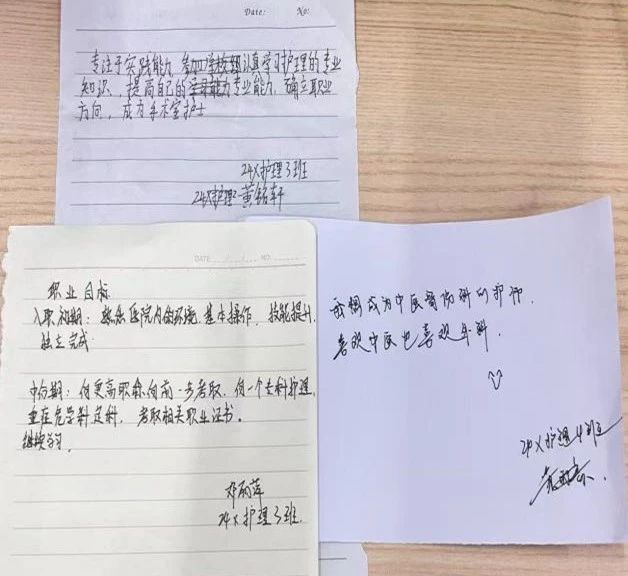 Date: No:
专注于实践能力, 认真学习护理的专业
知识、提高自己的专业能力, 确立职业
方向, 成为手术室护士
24X护理3班
24X护理 黄铭轩
DATE / / NO.
职业目标
入职初期: 熟悉医院内的环境, 基本操作, 技能提升,
独立完成
中后期: 向更高职称向前一步考取, 向一个专科护理,
定科, 考取相关职业证书。
继续学习.
邓丽萍
24X护理3班.
我想成为中医 的护师,
喜欢中医也喜欢
24X护理4班